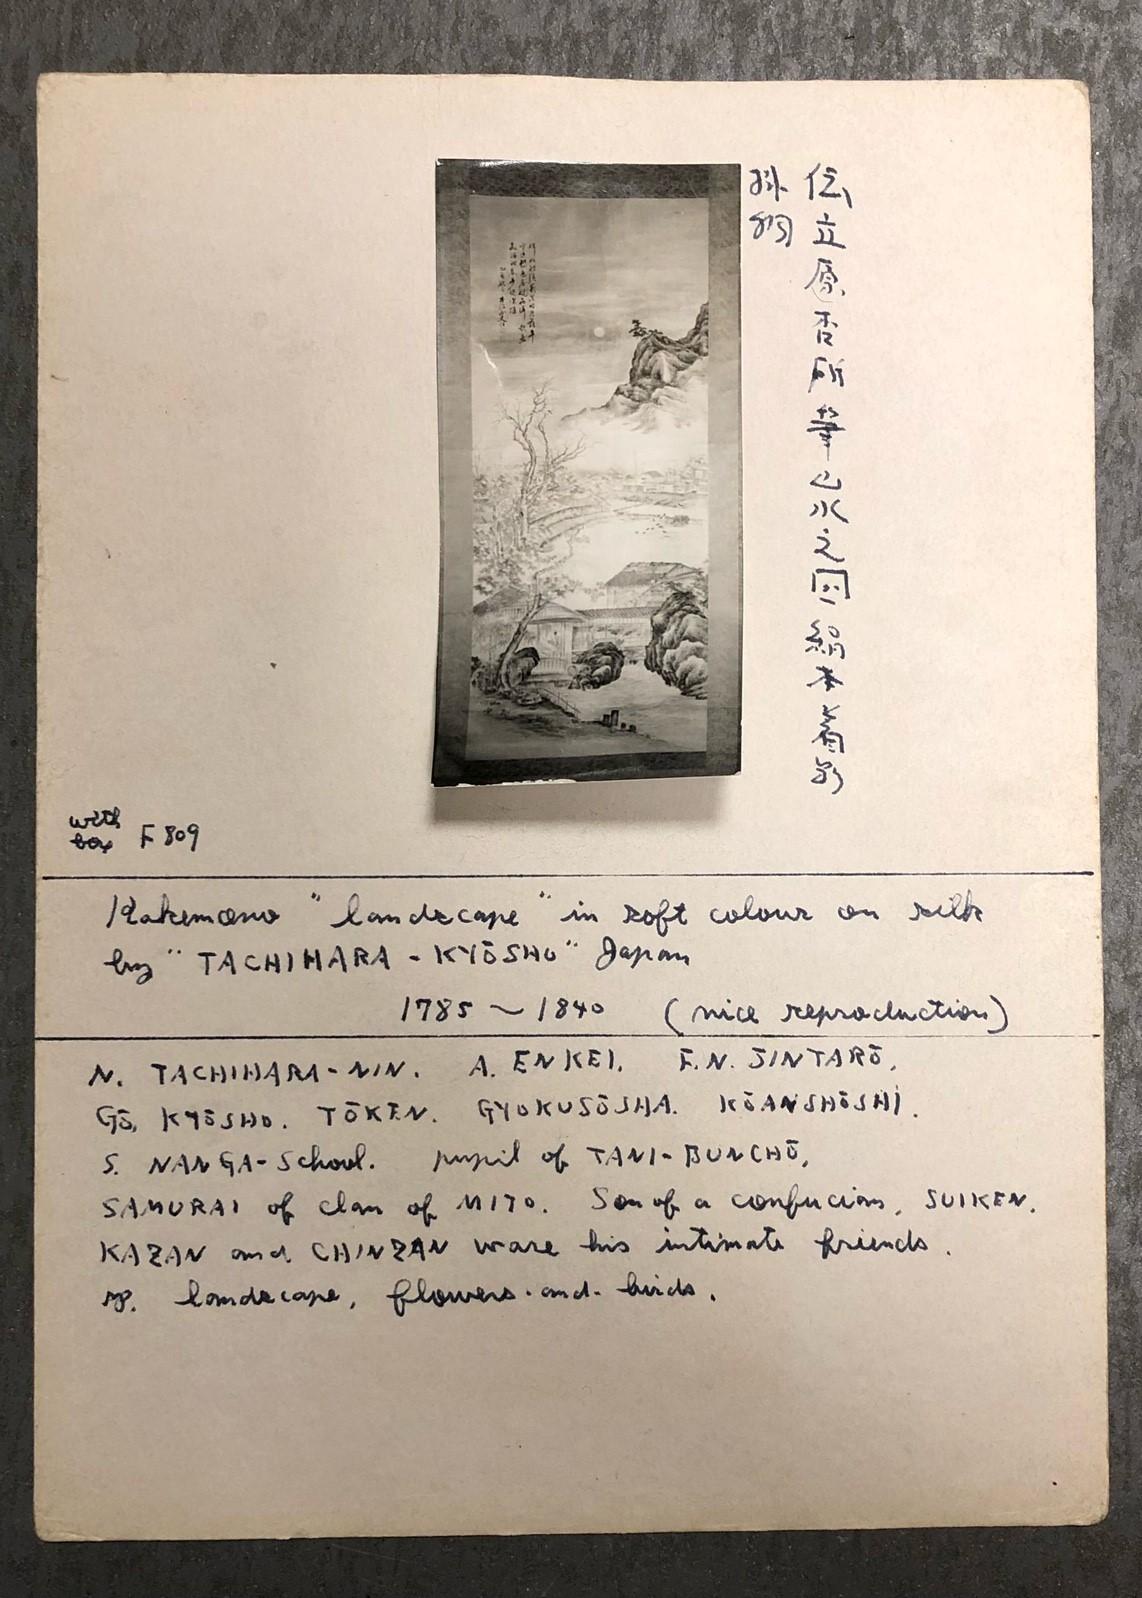 伝立原杏所筆山水之図絹本着彩
掛物
with
box F 809
Kakemono "landscape" in soft colour on silk
by "TACHIHARA-KYŌSHO" Japan
1785～1840 (nice reproduction)
N. TACHIHARA-NIN. A. ENKEI. F.N. JINTARŌ.
GŌ, KYŌSHO. TŌKEN. GYOKUSŌSHA. KŌANSHŌSHI.
S. NANGA-School. pupil of TANI-BUNCHŌ,
SAMURAI of clan of MITO. Son of a confucian, SUIKEN.
KAZAN and CHINZAN ware his intimate friends.
sp. landscape, flowers-and-birds.